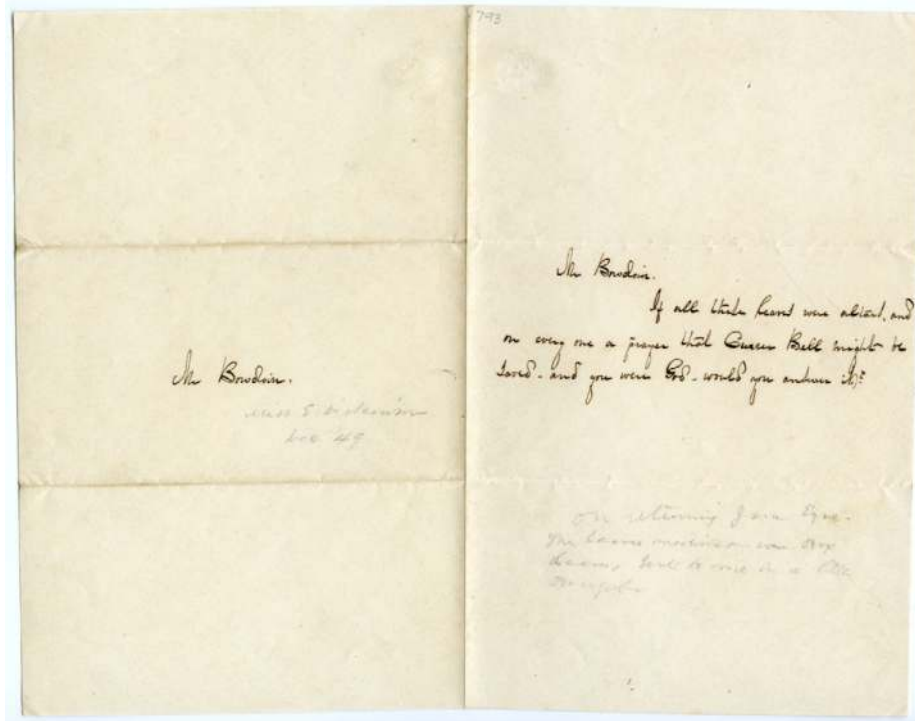 793
Mr Bowdoin.
Miss E Dickinson
Dec '49
Mr Bowdoin.
If all these leaves were altars, and
on every one a prayer that Currer Bell might be
saved - and you were God - would you answer it?
on returning Jane Eyre.
The leaves mentioned were Box
Leaves, sent to me in a little